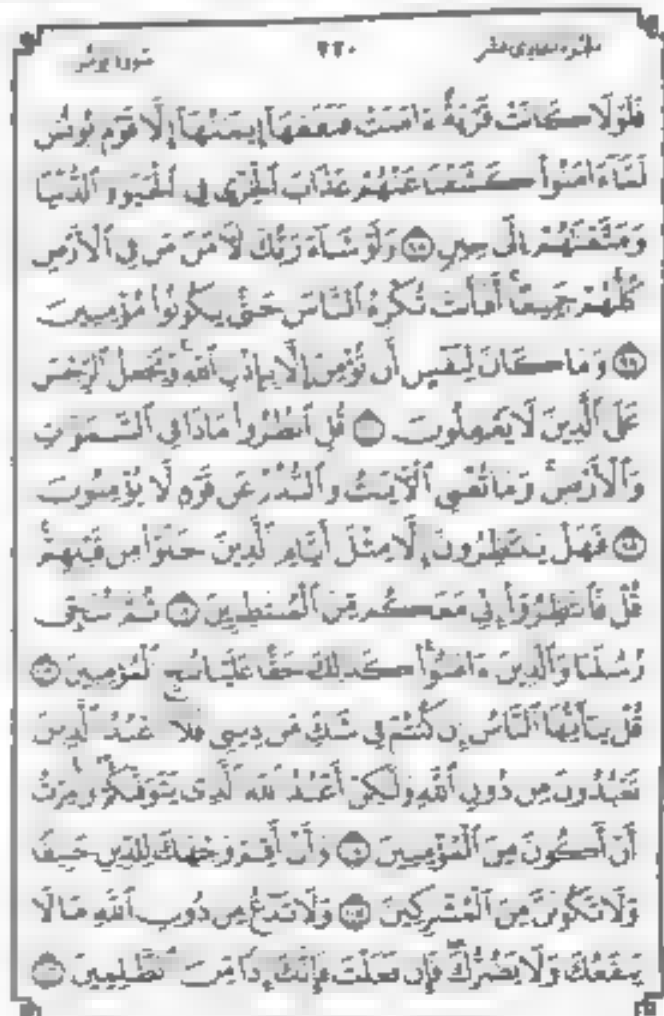 الجزء الحادي عشر ٢٢٠ سورة يونس
فَلَوْلَا كَانَتْ قَرْيَةٌ ءَامَنَتْ فَنَفَعَهَآ إِيمَٰنُهَآ إِلَّا قَوْمَ يُونُسَ
لَمَّآ ءَامَنُوا۟ كَشَفْنَا عَنْهُمْ عَذَابَ ٱلْخِزْىِ فِى ٱلْحَيَوٰةِ ٱلدُّنْيَا
وَمَتَّعْنَٰهُمْ إِلَىٰ حِينٍ ٩٨ وَلَوْ شَآءَ رَبُّكَ لَءَامَنَ مَن فِى ٱلْأَرْضِ
كُلُّهُمْ جَمِيعًا أَفَأَنتَ تُكْرِهُ ٱلنَّاسَ حَتَّىٰ يَكُونُوا۟ مُؤْمِنِينَ
٩٩ وَمَا كَانَ لِنَفْسٍ أَن تُؤْمِنَ إِلَّا بِإِذْنِ ٱللَّهِ وَيَجْعَلُ ٱلرِّجْسَ
عَلَى ٱلَّذِينَ لَا يَعْقِلُونَ ١٠٠ قُلِ ٱنظُرُوا۟ مَاذَا فِى ٱلسَّمَٰوَٰتِ
وَٱلْأَرْضِ وَمَا تُغْنِى ٱلْءَايَٰتُ وَٱلنُّذُرُ عَن قَوْمٍ لَّا يُؤْمِنُونَ
١٠١ فَهَلْ يَنتَظِرُونَ إِلَّا مِثْلَ أَيَّامِ ٱلَّذِينَ خَلَوْا۟ مِن قَبْلِهِمْ
قُلْ فَٱنتَظِرُوٓا۟ إِنِّى مَعَكُم مِّنَ ٱلْمُنتَظِرِينَ ١٠٢ ثُمَّ نُنَجِّى
رُسُلَنَا وَٱلَّذِينَ ءَامَنُوا۟ كَذَٰلِكَ حَقًّا عَلَيْنَا نُنجِ ٱلْمُؤْمِنِينَ ١٠٣
قُلْ يَٰٓأَيُّهَا ٱلنَّاسُ إِن كُنتُمْ فِى شَكٍّ مِّن دِينِى فَلَآ أَعْبُدُ ٱلَّذِينَ
تَعْبُدُونَ مِن دُونِ ٱللَّهِ وَلَٰكِنْ أَعْبُدُ ٱللَّهَ ٱلَّذِى يَتَوَفَّىٰكُمْ وَأُمِرْتُ
أَنْ أَكُونَ مِنَ ٱلْمُؤْمِنِينَ ١٠٤ وَأَنْ أَقِمْ وَجْهَكَ لِلدِّينِ حَنِيفًا
وَلَا تَكُونَنَّ مِنَ ٱلْمُشْرِكِينَ ١٠٥ وَلَا تَدْعُ مِن دُونِ ٱللَّهِ مَا لَا
يَنفَعُكَ وَلَا يَضُرُّكَ فَإِن فَعَلْتَ فَإِنَّكَ إِذًا مِّنَ ٱلظَّٰلِمِينَ ١٠٦